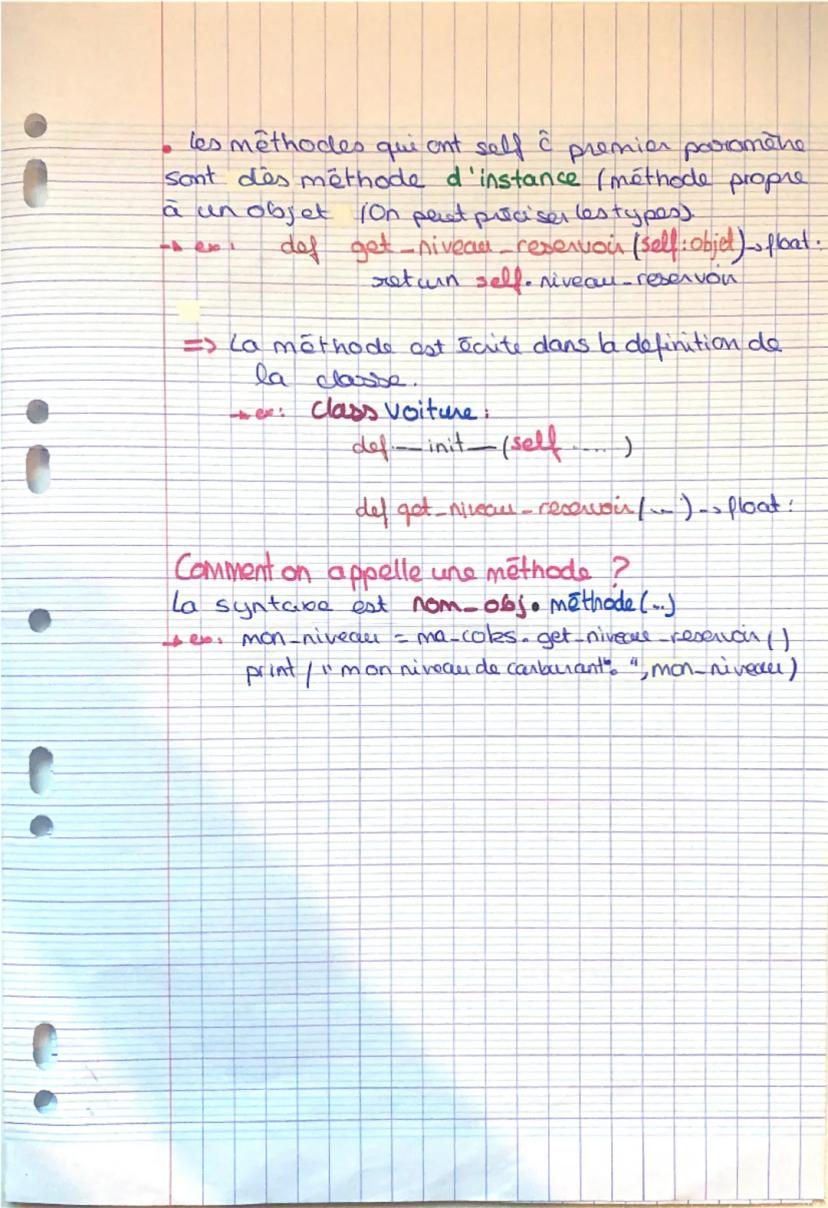 . Les méthodes qui ont self ĉ premier paramètre
sont des méthode d'instance (méthode propre
à un objet (On peut préciser les types)
→ ex: def get_niveau_reservoir(self:objet)→float:
return self.niveau_reservoir
=> La méthode est écrite dans la definition de
la classe.
→ ex: class voiture:
def __init__(self ....)
def get_niveau_reservoir(...)→float:
Comment on appelle une méthode ?
La syntaxe est nom_obj.méthode(...)
→ ex: mon_niveau = ma_coles.get_niveau_reservoir()
print("mon niveau de carburant: ", mon_niveau)